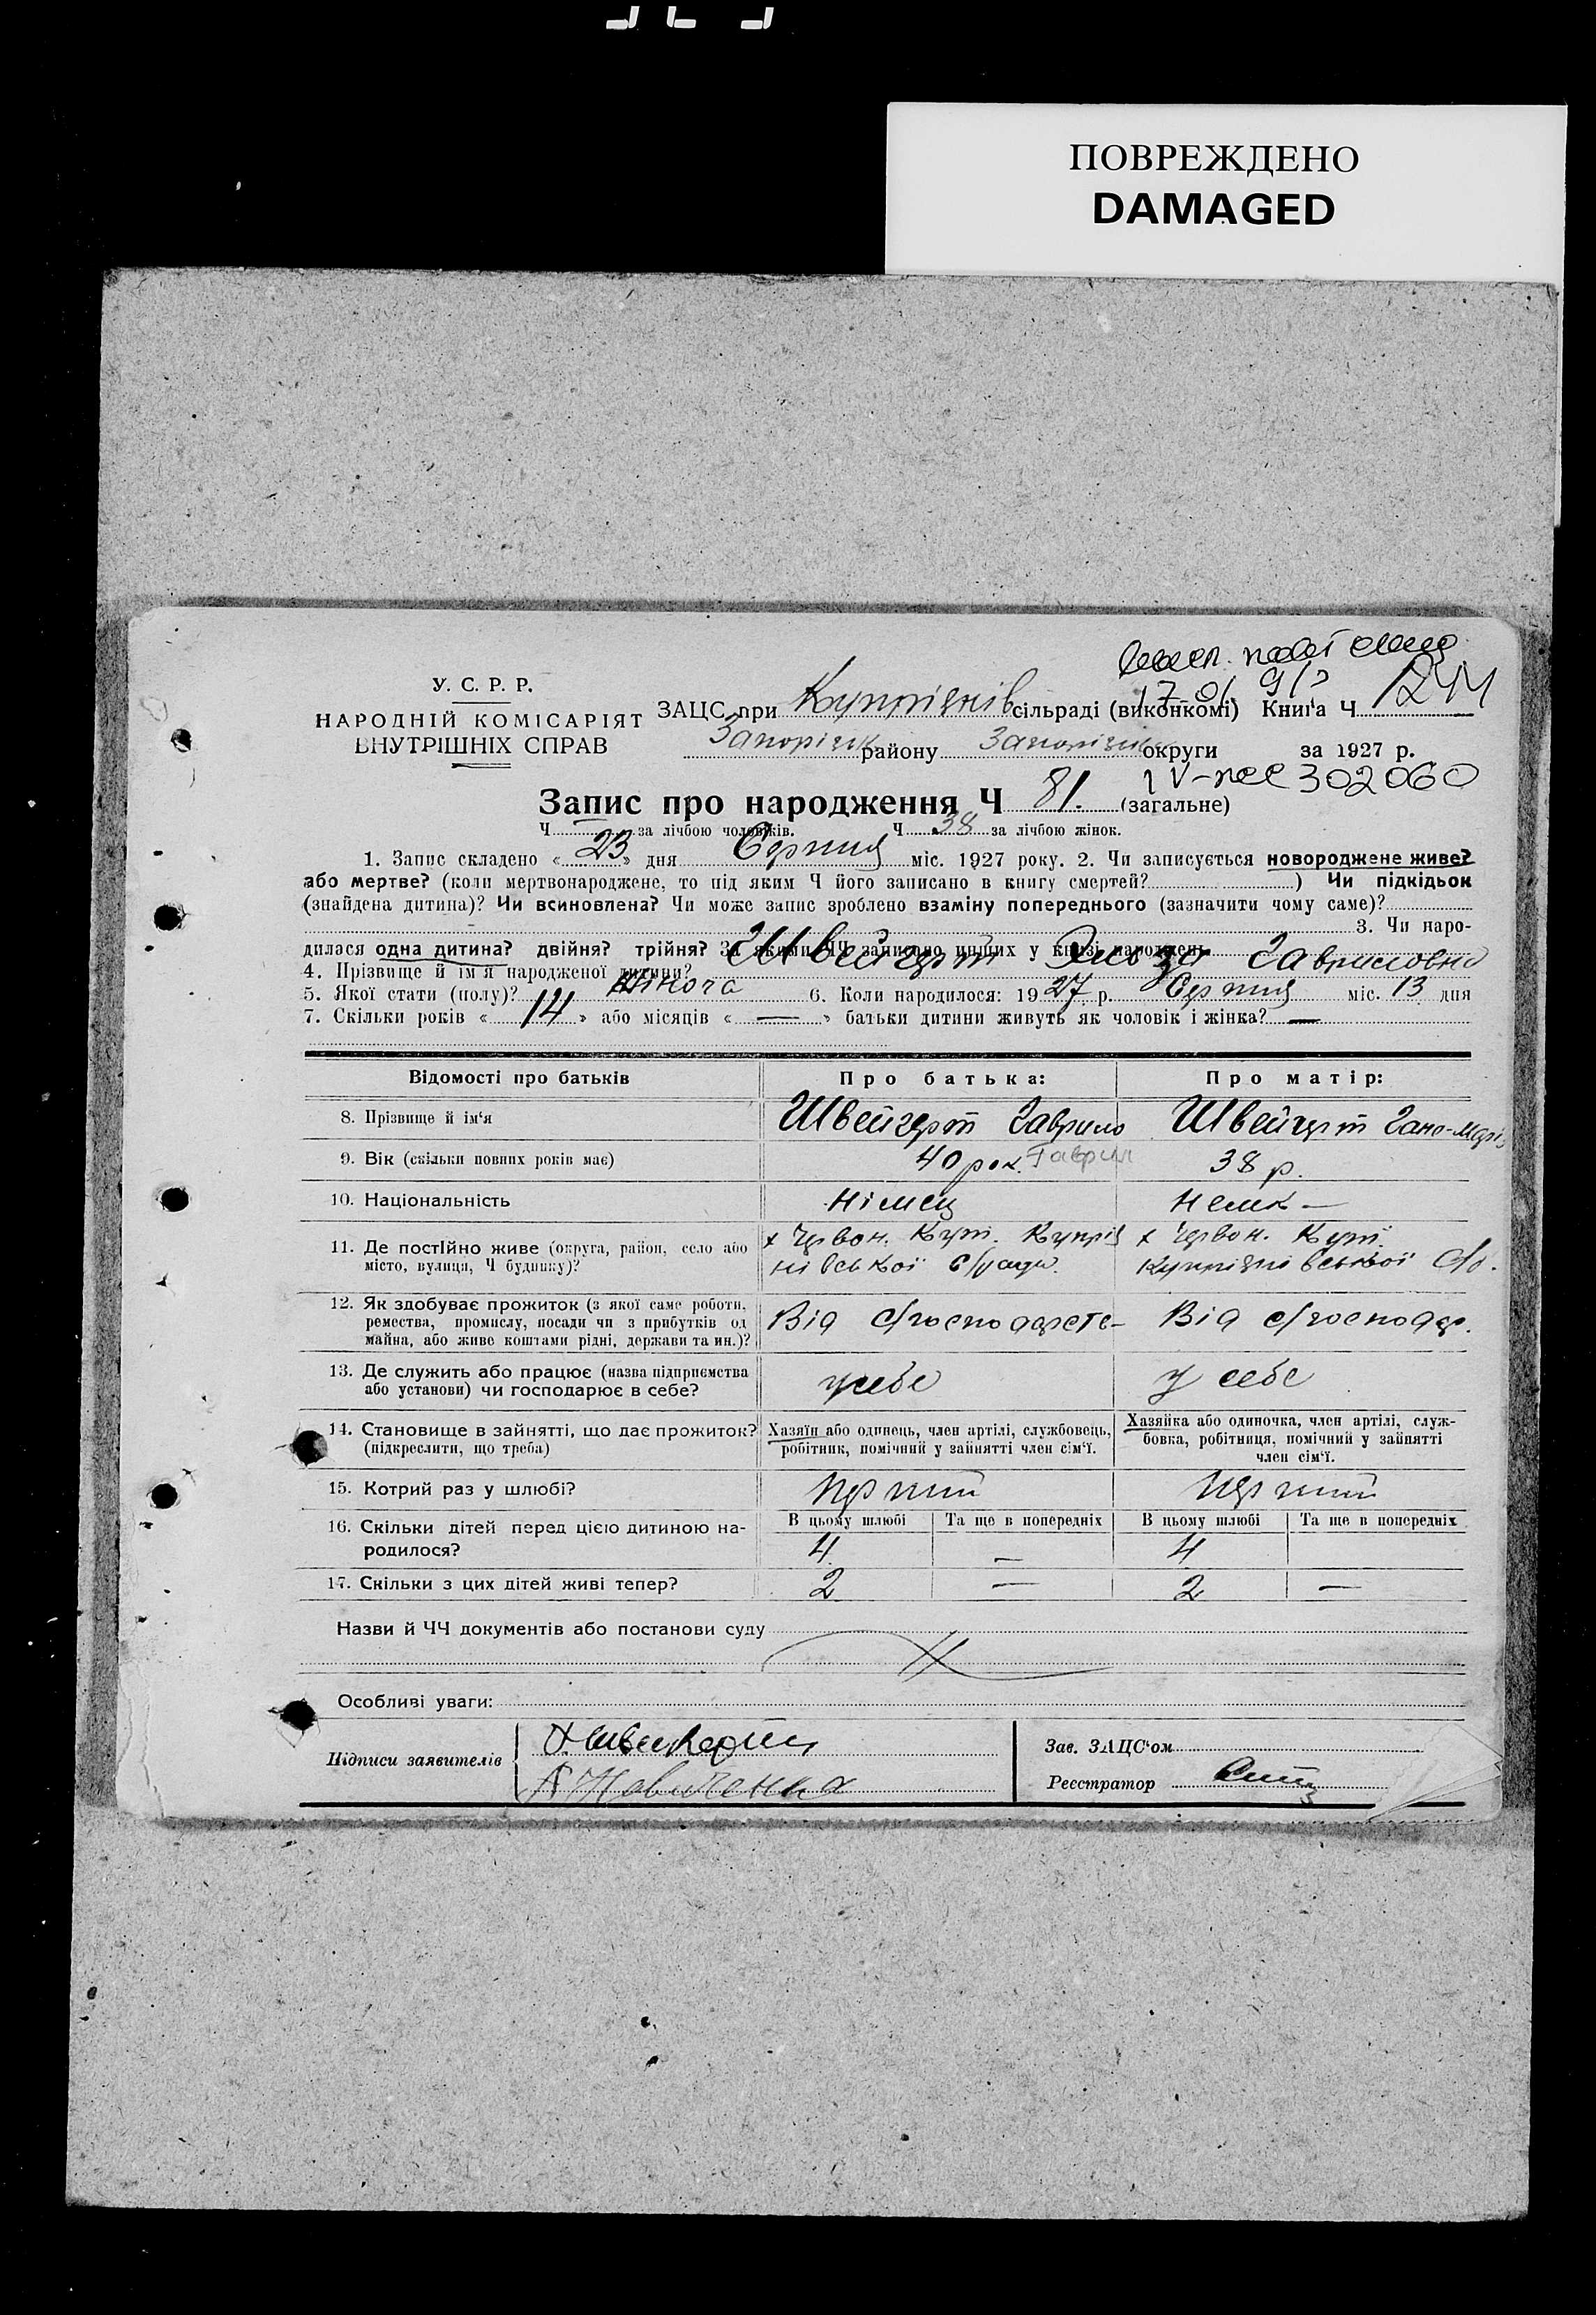 ПОВРЕЖДЕНО
DAMAGED
У. С. Р. Р.
НАРОДНІЙ КОМІСАРІЯТ
ВНУТРІШНІХ СПРАВ
ЗАЦС при Купріянів сільраді (виконкомі) Книга Ч
Запорізьк району Запорізьк округи за 1927 р.
302060
Запис про народження Ч 81. (загальне)
Ч — за лічбою чоловіків. Ч 38 за лічбою жінок.
1. Запис складено «23» дня Серпня міс. 1927 року. 2. Чи записується новороджене живе?
або мертве? (коли мертвонароджене, то під яким Ч його записано в книгу смертей? ) Чи підкідьок
(знайдена дитина)? Чи всиновлена? Чи може запис зроблено взаміну попереднього (зазначити чому саме)?
3. Чи наро-
дилася одна дитина? двійня? трійня? За якими ЧЧ записано инших у книзі народжень
4. Прізвище й ім'я народженої дитини? Швейгерт Эльза Гавриловна
5. Якої стати (полу)? Жіноча 6. Коли народилося: 1927 р. Серпня міс. 13 дня
7. Скільки років «14» або місяців «—» батьки дитини живуть як чоловік і жінка? —
Відомості про батьків Про батька: Про матір:
8. Прізвище й ім'я Швейгерт Гаврило Швейгерт Гано-Марія
9. Вік (скільки повних років має) 40 рок. Гаврил 38 р.
10. Національність Німець Немк—
11. Де постійно живе (округа, район, село або х Червон. Кут. Купрія х Червон. Кут.
місто, вулиця, Ч будинку)? нівської с/ради. Купріянівської с/р.
12. Як здобуває прожиток (з якої саме роботи,
ремества, промислу, посади чи з прибутків од Від с/господарств- Від с/господар.
майна, або живе коштами рідні, держави та ин.)?
13. Де служить або працює (назва підприємства
або установи) чи господарює в себе? у себе у себе
14. Становище в зайнятті, що дає прожиток? Хазяїн або одинець, член артілі, службовець, Хазяйка або одиночка, член артілі, служ-
(підкреслити, що треба) робітник, помічний у зайнятті член сім'ї. бовка, робітниця, помічний у зайнятті
член сім'ї.
15. Котрий раз у шлюбі? Перший Перший
16. Скільки дітей перед цією дитиною на- В цьому шлюбі Та ще в попередніх В цьому шлюбі Та ще в попередніх
родилося? 4 — 4
17. Скільки з цих дітей живі тепер? 2 — 2 —
Назви й ЧЧ документів або постанови суду
Особливі уваги:
Підписи заявителів
Зав. ЗАЦС'ом
Реєстратор